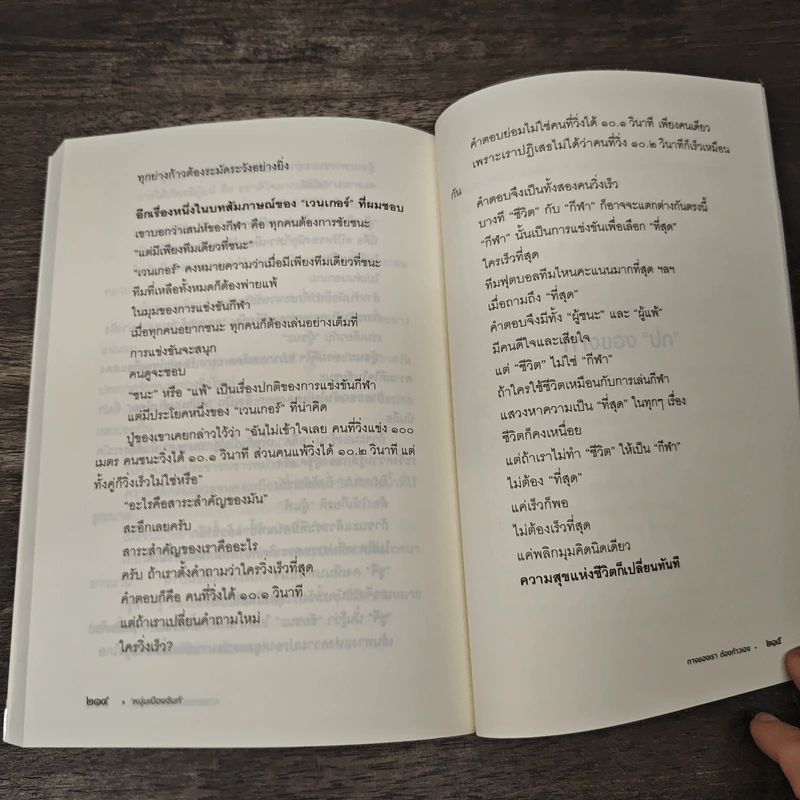 ทุกย่างก้าวต้องระมัดระวังอย่างยิ่ง
อีกเรื่องหนึ่งในบทสัมภาษณ์ของ "เวนเกอร์" ที่ผมชอบ
เขาบอกว่าเสน่ห์ของกีฬา คือ ทุกคนต้องการชัยชนะ
"แต่มีเพียงทีมเดียวที่ชนะ"
"เวนเกอร์" คงหมายความว่าเมื่อมีเพียงทีมเดียวที่ชนะ
ทีมที่เหลือทั้งหมดก็ต้องพ่ายแพ้
ในมุมของการแข่งขันกีฬา
เมื่อทุกคนอยากชนะ ทุกคนก็ต้องเล่นอย่างเต็มที่
การแข่งขันจะสนุก
คนดูจะชอบ
"ชนะ" หรือ "แพ้" เป็นเรื่องปกติของการแข่งขันกีฬา
แต่มีประโยคหนึ่งของ "เวนเกอร์" ที่น่าคิด
ปู่ของเขาเคยกล่าวไว้ว่า "ฉันไม่เข้าใจเลย คนที่วิ่งแข่ง ๑๐๐
เมตร คนชนะวิ่งได้ ๑๐.๑ วินาที ส่วนคนแพ้วิ่งได้ ๑๐.๒ วินาที แต่
ทั้งคู่ก็วิ่งเร็วไม่ใช่หรือ"
"อะไรคือสาระสำคัญของมัน"
สะอึกเลยครับ
สาระสำคัญของเราคืออะไร
ครับ ถ้าเราตั้งคำถามว่าใครวิ่งเร็วที่สุด
คำตอบก็คือ คนที่วิ่งได้ ๑๐.๑ วินาที
แต่ถ้าเราเปลี่ยนคำถามใหม่
ใครวิ่งเร็ว?
๒๑๔ • 'หนุ่มเมืองจันท์'
คำตอบย่อมไม่ใช่คนที่วิ่งได้ ๑๐.๑ วินาที เพียงคนเดียว
เพราะเราปฏิเสธไม่ได้ว่าคนที่วิ่ง ๑๐.๒ วินาทีก็เร็วเหมือน
กัน
คำตอบจึงเป็นทั้งสองคนวิ่งเร็ว
บางที "ชีวิต" กับ "กีฬา" ก็อาจจะแตกต่างกันตรงนี้
"กีฬา" นั้นเป็นการแข่งขันเพื่อเลือก "ที่สุด"
ใครเร็วที่สุด
ทีมฟุตบอลทีมไหนคะแนนมากที่สุด ฯลฯ
เมื่อถามถึง "ที่สุด"
คำตอบจึงมีทั้ง "ผู้ชนะ" และ "ผู้แพ้"
มีคนดีใจและเสียใจ
แต่ "ชีวิต" ไม่ใช่ "กีฬา"
ถ้าใครใช้ชีวิตเหมือนกับการเล่นกีฬา
แสวงหาความเป็น "ที่สุด" ในทุกๆ เรื่อง
ชีวิตก็คงเหนื่อย
แต่ถ้าเราไม่ทำ "ชีวิต" ให้เป็น "กีฬา"
ไม่ต้อง "ที่สุด"
แค่เร็วก็พอ
ไม่ต้องเร็วที่สุด
แค่พลิกมุมคิดนิดเดียว
ความสุขแห่งชีวิตก็เปลี่ยนทันที
ทางของเรา ต้องก้าวเอง • ๒๑๕